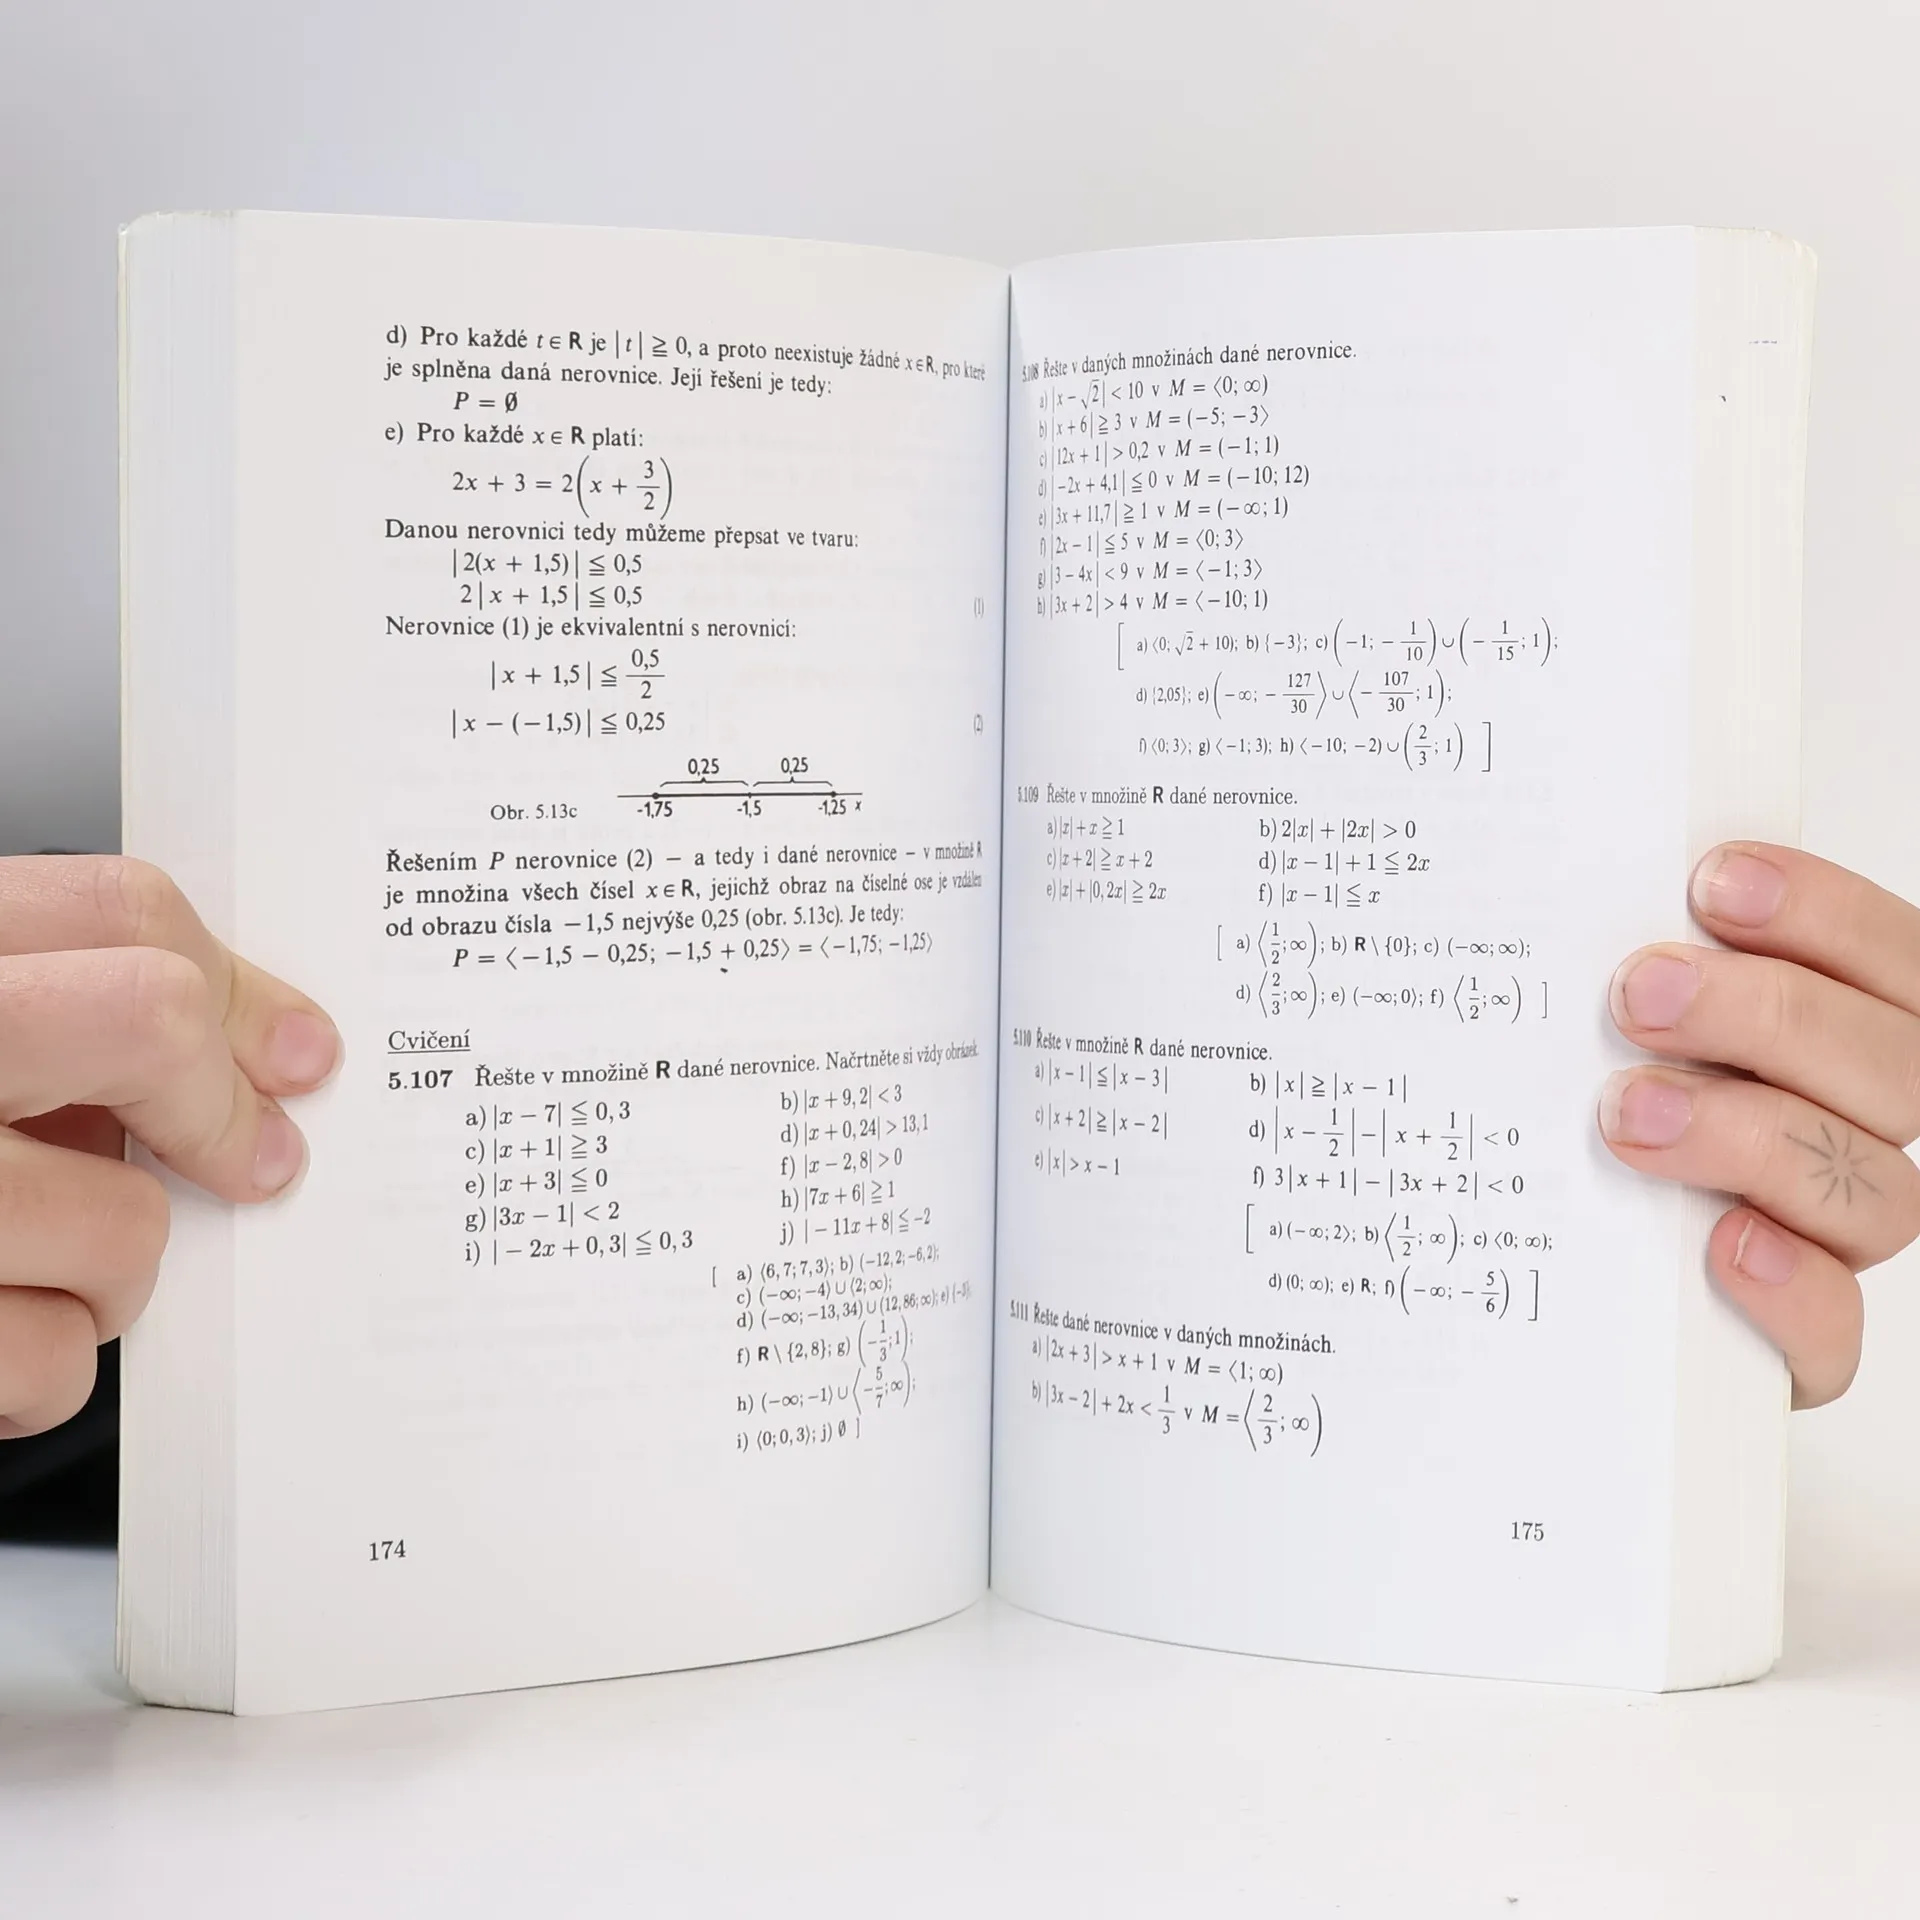 d) Pro každé t ∈ R je |t| ≧ 0, a proto neexistuje žádné x ∈ R, pro které
je splněna daná nerovnice. Její řešení je tedy:
P = ∅
e) Pro každé x ∈ R platí:
2x + 3 = 2(x + 3/2)
Danou nerovnici tedy můžeme přepsat ve tvaru:
|2(x + 1,5)| ≦ 0,5
2|x + 1,5| ≦ 0,5 (1)
Nerovnice (1) je ekvivalentní s nerovnicí:
|x + 1,5| ≦ 0,5/2
|x − (−1,5)| ≦ 0,25 (2)
0,25 0,25
Obr. 5.13c -1,75 -1,5 -1,25 x
Řešením P nerovnice (2) — a tedy i dané nerovnice — v množině R
je množina všech čísel x ∈ R, jejichž obraz na číselné ose je vzdálen
od obrazu čísla −1,5 nejvýše 0,25 (obr. 5.13c). Je tedy:
P = ⟨−1,5 − 0,25; −1,5 + 0,25⟩ = ⟨−1,75; −1,25⟩
Cvičení
5.107 Řešte v množině R dané nerovnice. Načrtněte si vždy obrázek.
a) |x − 7| ≦ 0,3 b) |x + 9,2| < 3
c) |x + 1| ≧ 3 d) |x + 0,24| > 13,1
e) |x + 3| ≦ 0 f) |x − 2,8| > 0
g) |3x − 1| < 2 h) |7x + 6| ≧ 1
i) |− 2x + 0,3| ≦ 0,3 j) |− 11x + 8| ≦ −2
[ a) ⟨6,7; 7,3⟩; b) (−12,2; −6,2);
c) (−∞; −4⟩ ∪ ⟨2; ∞);
d) (−∞; −13,34) ∪ (12,86; ∞); e) {−3};
f) R \ {2,8}; g) (−1/3; 1);
h) (−∞; −1⟩ ∪ ⟨−5/7; ∞);
i) ⟨0; 0,3⟩; j) ∅ ]
174
5.108 Řešte v daných množinách dané nerovnice.
a) |x − √2| < 10 v M = ⟨0; ∞)
b) |x + 6| ≧ 3 v M = (−5; −3⟩
c) |12x + 1| > 0,2 v M = (−1; 1)
d) |−2x + 4,1| ≦ 0 v M = (−10; 12)
e) |3x + 11,7| ≧ 1 v M = (−∞; 1)
f) |2x − 1| ≦ 5 v M = ⟨0; 3⟩
g) |3 − 4x| < 9 v M = ⟨−1; 3⟩
h) |3x + 2| > 4 v M = ⟨−10; 1)
[ a) ⟨0; √2 + 10); b) {−3}; c) (−1; −1/10) ∪ (−1/15; 1);
d) {2,05}; e) (−∞; −127/30⟩ ∪ ⟨−107/30; 1);
f) ⟨0; 3⟩; g) ⟨−1; 3); h) ⟨−10; −2) ∪ (2/3; 1) ]
5.109 Řešte v množině R dané nerovnice.
a) |x| + x ≧ 1 b) 2|x| + |2x| > 0
c) |x + 2| ≧ x + 2 d) |x − 1| + 1 ≦ 2x
e) |x| + |0,2x| ≧ 2x f) |x − 1| ≦ x
[ a) ⟨1/2; ∞); b) R \ {0}; c) (−∞; ∞);
d) ⟨2/3; ∞); e) (−∞; 0⟩; f) ⟨1/2; ∞) ]
5.110 Řešte v množině R dané nerovnice.
a) |x − 1| ≦ |x − 3| b) |x| ≧ |x − 1|
c) |x + 2| ≧ |x − 2| d) |x − 1/2| − |x + 1/2| < 0
e) |x| > x − 1 f) 3|x + 1| − |3x + 2| < 0
[ a) (−∞; 2⟩; b) ⟨1/2; ∞); c) ⟨0; ∞);
d) (0; ∞); e) R; f) (−∞; −5/6) ]
5.111 Řešte dané nerovnice v daných množinách.
a) |2x + 3| > x + 1 v M = ⟨1; ∞)
b) |3x − 2| + 2x < 1/3 v M = ⟨2/3; ∞)
175